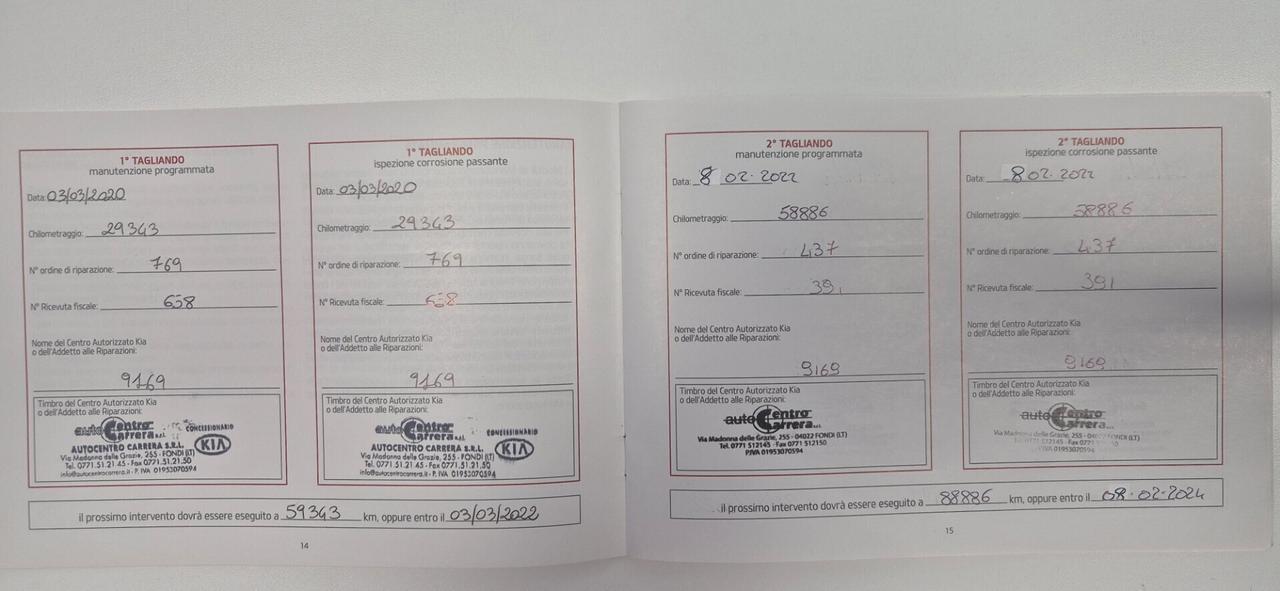 1° TAGLIANDO
manutenzione programmata
Data: 03/03/2020
Chilometraggio: 29343
N° ordine di riparazione: 769
N° Ricevuta fiscale: 658
Nome del Centro Autorizzato Kia
o dell'Addetto alle Riparazioni:
9169
Timbro del Centro Autorizzato Kia
o dell'Addetto alle Riparazioni:
auto Centro Carrera s.r.l. CONCESSIONARIO
KIA
AUTOCENTRO CARRERA S.R.L.
Via Madonna delle Grazie, 255 - FONDI (LT)
Tel. 0771.51.21.45 - Fax 0771.51.21.50
info@autocentrocarrera.it - P. IVA 01953070594
1° TAGLIANDO
ispezione corrosione passante
Data: 03/03/2020
Chilometraggio: 29343
N° ordine di riparazione: 769
N° Ricevuta fiscale: 658
Nome del Centro Autorizzato Kia
o dell'Addetto alle Riparazioni:
9169
Timbro del Centro Autorizzato Kia
o dell'Addetto alle Riparazioni:
auto Centro Carrera s.r.l. CONCESSIONARIO
KIA
AUTOCENTRO CARRERA S.R.L.
Via Madonna delle Grazie, 255 - FONDI (LT)
Tel. 0771.51.21.45 - Fax 0771.51.21.50
info@autocentrocarrera.it - P. IVA 01953070594
il prossimo intervento dovrà essere eseguito a 59343 km, oppure entro il 03/03/2022
14
2° TAGLIANDO
manutenzione programmata
Data: 8 02.2022
Chilometraggio: 58886
N° ordine di riparazione: 437
N° Ricevuta fiscale: 391
Nome del Centro Autorizzato Kia
o dell'Addetto alle Riparazioni:
9169
Timbro del Centro Autorizzato Kia
o dell'Addetto alle Riparazioni:
auto Centro Carrera s.r.l.
Via Madonna delle Grazie, 255 - 04022 FONDI (LT)
Tel. 0771 512145 - Fax 0771 512150
P.IVA 01953070594
2° TAGLIANDO
ispezione corrosione passante
Data: 8 02.2022
Chilometraggio: 58886
N° ordine di riparazione: 437
N° Ricevuta fiscale: 391
Nome del Centro Autorizzato Kia
o dell'Addetto alle Riparazioni:
9169
Timbro del Centro Autorizzato Kia
o dell'Addetto alle Riparazioni:
auto Centro Carrera
Via Madonna delle Grazie, 255 - 04022 FONDI (LT)
0771 512145 - Fax 0771 512150
P.IVA 01953070594
il prossimo intervento dovrà essere eseguito a 88886 km, oppure entro il 08.02.2024
15